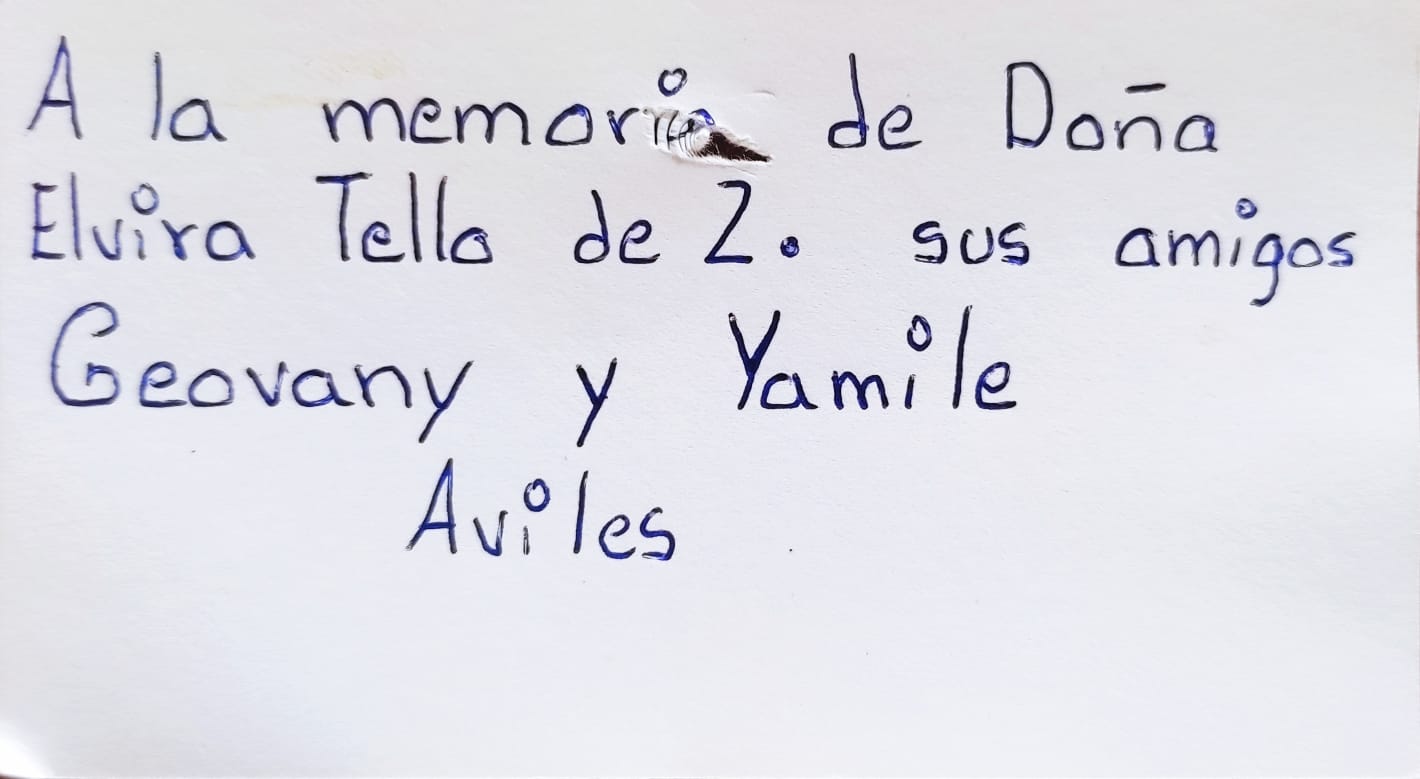 A la memoria de Doña
Elvira Tello de Z. sus amigos
Geovany y Yamile
Aviles